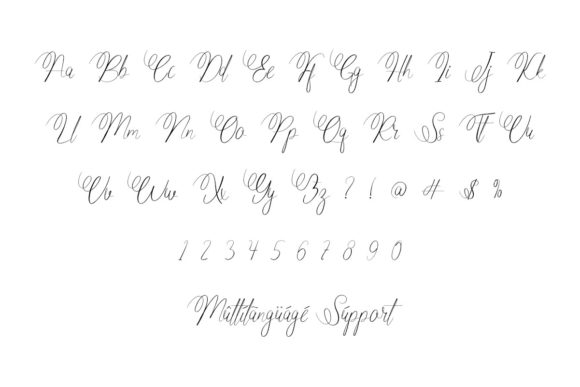 Aa Bb Cc Dd Ee Ff Gg Hh Ii Jj Kk
Ll Mm Nn Oo Pp Qq Rr Ss Tt Uu
Vv Ww Xx Yy Zz ? ! @ # $ %
1 2 3 4 5 6 7 8 9 0
Múltilángüágé Súpport